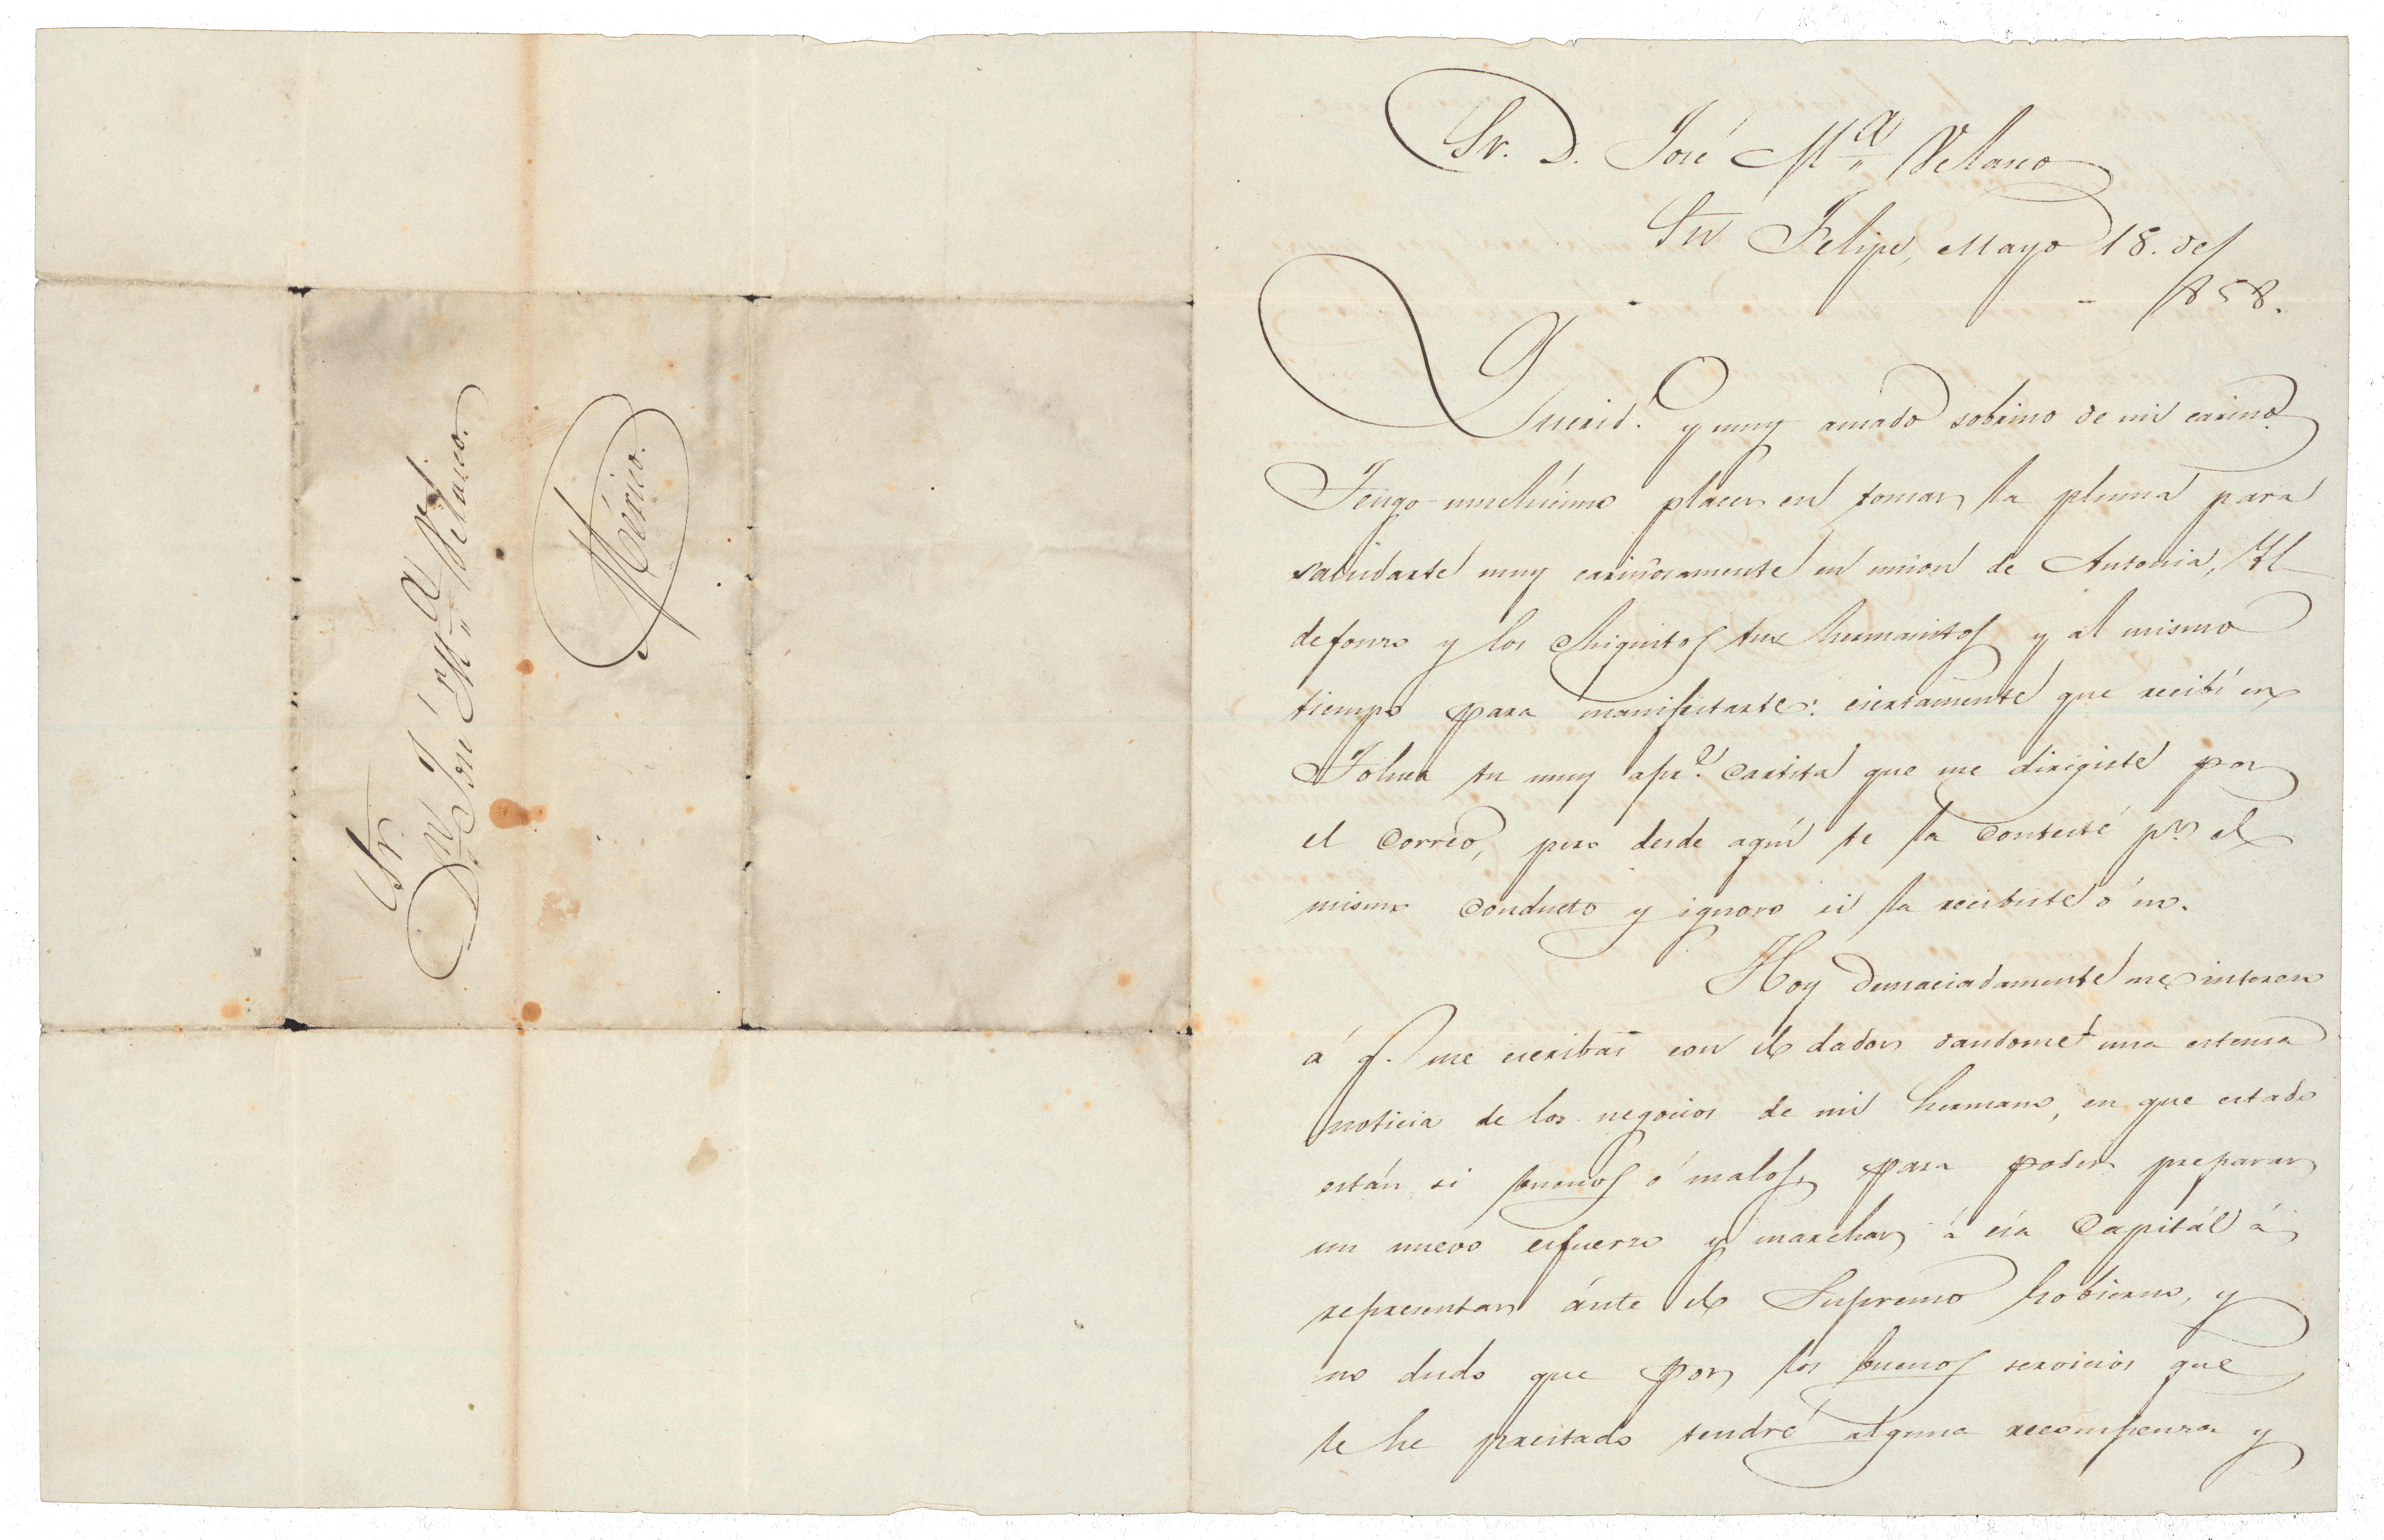 Sr.
Dn José Ma Velasco.
México.
Sr. D. José Ma Velasco
Sn Felipe, Mayo 18. de
1858.
Querido. y muy amado sobrino de mi cariño.
Tengo muchísimo placer en tomar la pluma para
saludarte muy cariñosamente en union de Antonia, Yl
defonso y los chiquitos tus hermanitos y al mismo
tiempo para manifestarte: ciertamente que recibí en
Toluca tu muy apre. cartita que me dirigiste por
el correo, pero desde aquí te la contesté pr. el
mismo conducto y ignoro si la recibiste ó no.
Hoy demaciadamente me interesa
á q. me escribas con el dador dandome una estensa
noticia de los negocios de mi hermano, en que estado
están si buenos ó malos, para poder preparar
un nuevo esfuerzo y marchar á esa Capitál á
representar ánte el Supremo Gobierno, y
no dudo que por los buenos servicios que
le he prestado tendré alguna recompensa y